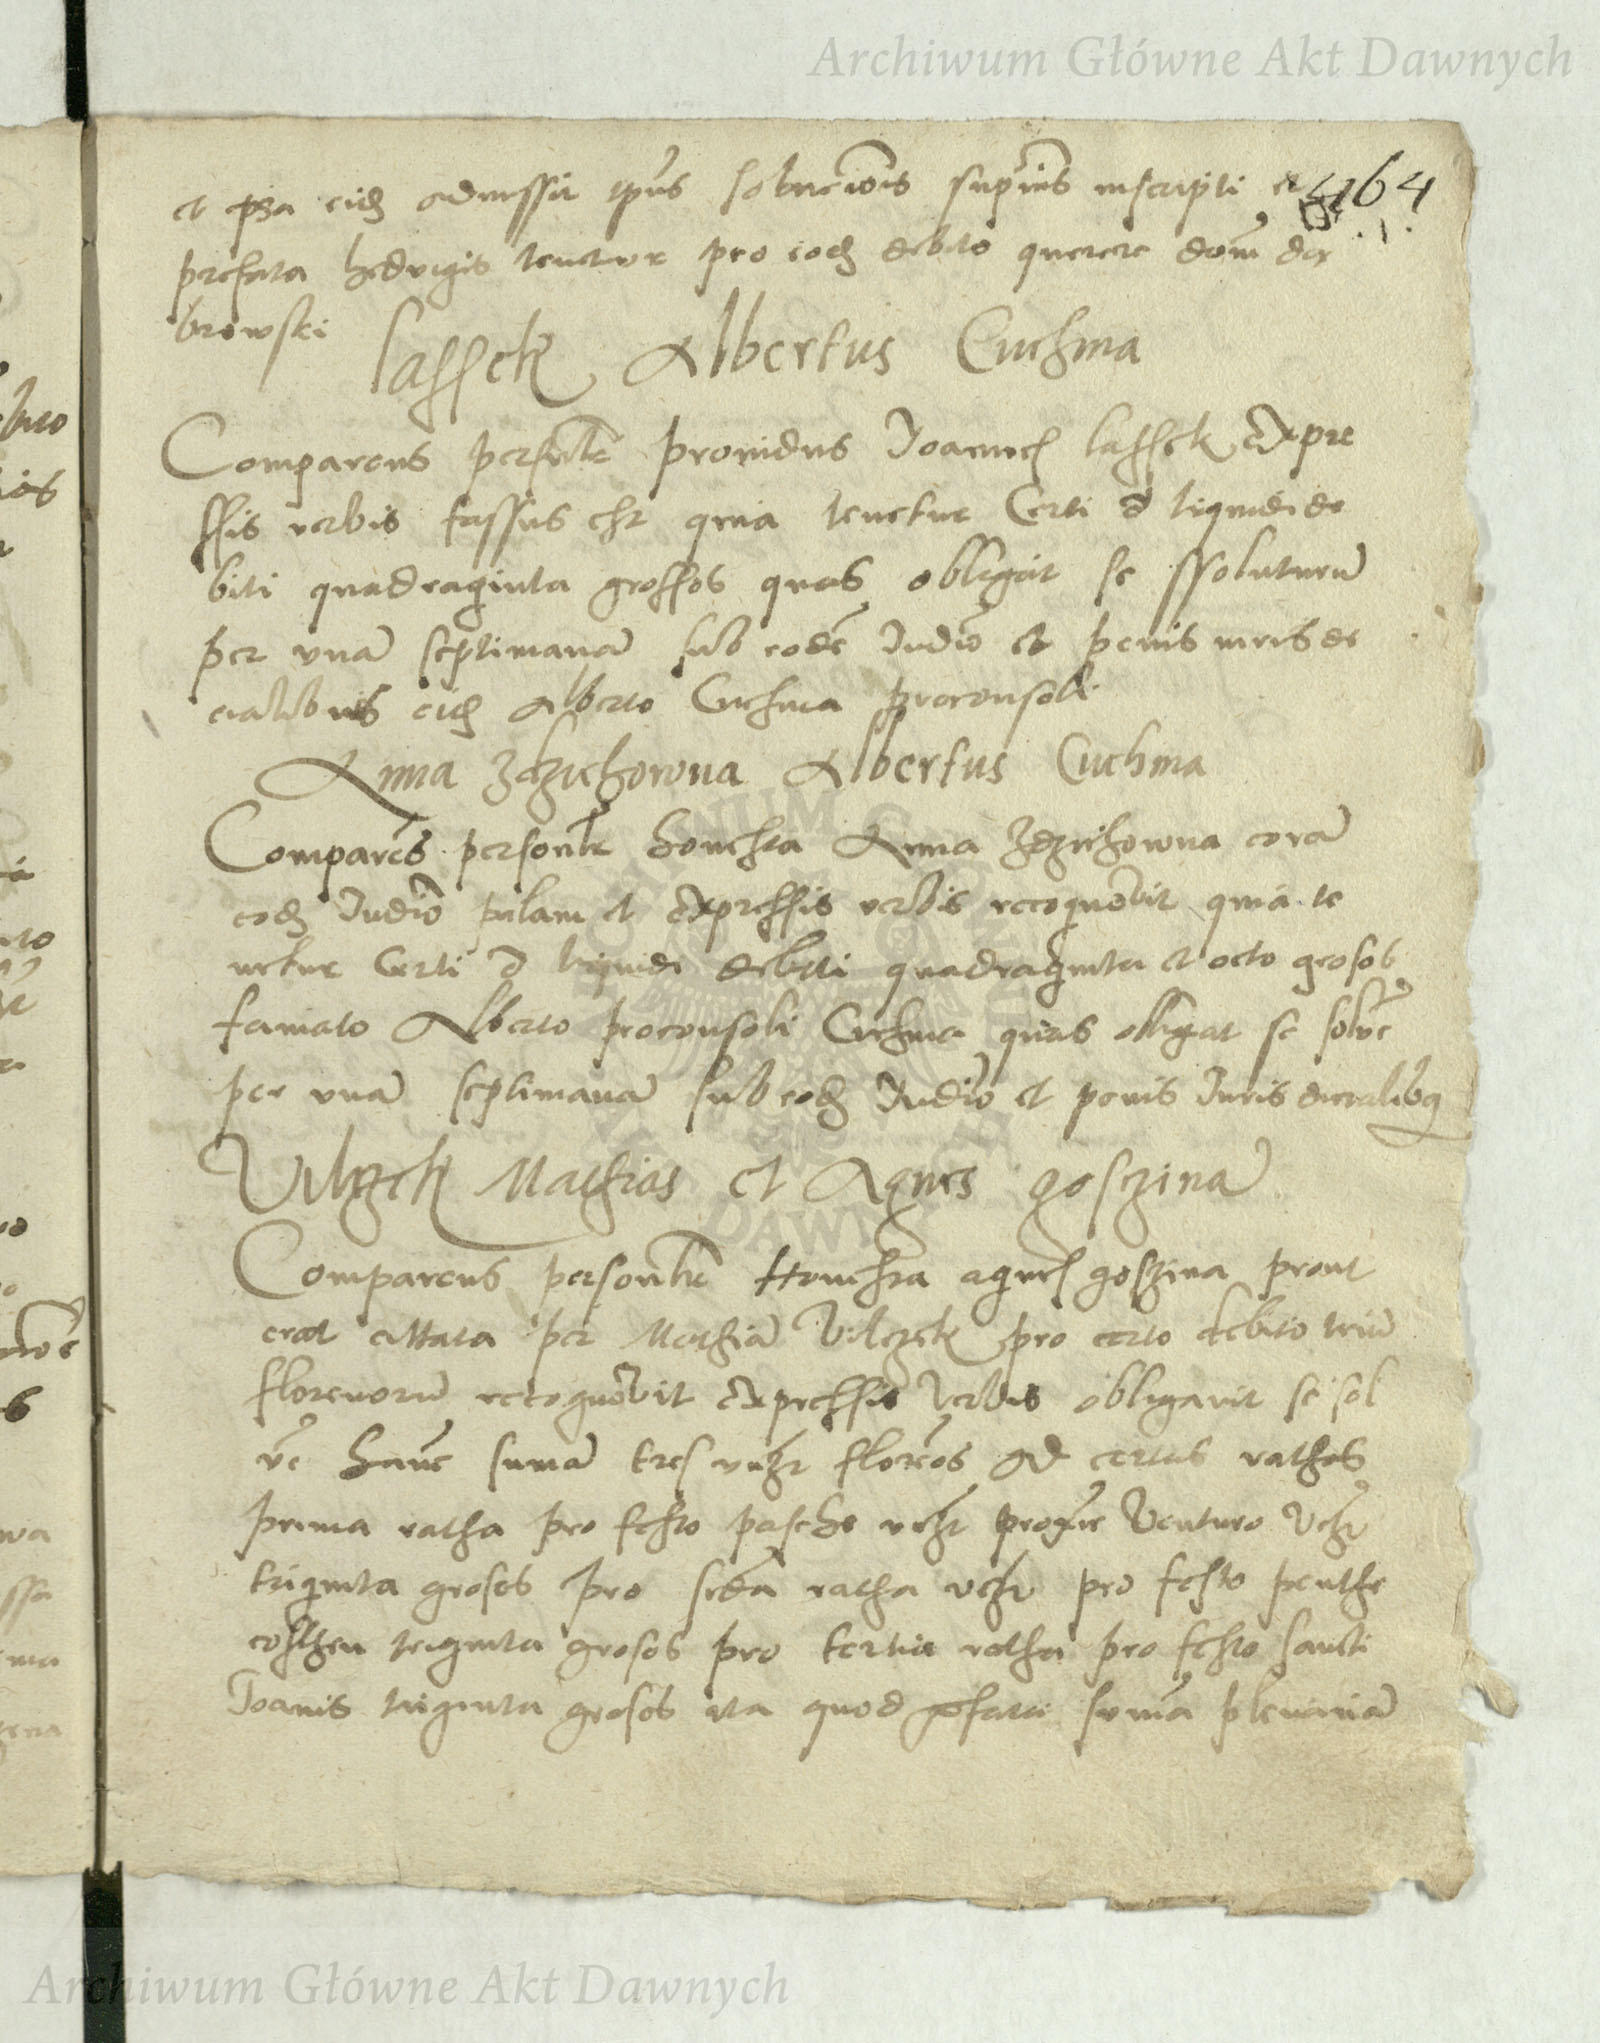 Archiwum Główne Akt Dawnych
et admissit solucionis inscripti et 164
prefata hedvigis tenetur pro eod debito querere dom dex
browski
Lassek Albertus Cuchma
Comparens personlr providus Joannes Lassek expre
ssis verbis fassus est quia tenetur Certi et liquidi de
biti quadraginta grossos quos obligat se ssoluturu
per una septimana sub eode Judio et penis iuris de
cralibus Alberto Cuchma proconsoli
Anna Albertus Cuchma
Compares personlr honesta Anna cora
eod Judio palam et expressis verbis recognovit quia te
netur Certi et liquidi debiti quadraginta et octo grosos
famato Alberto proconsoli Cuchma quos obligat se solve
per una septimana sub eod Judio et penis Juris
Vilczek Mathias et Agnes goszina
Comparens personlr Honesta agnes goszina prout
erat cittata per Mathia Vilczek pro certo debito triu
florenoru recognovit expressis verbis obligavit se sol
ve hanc suma tres florenos ad certas rathas
prima ratha pro festo pasche venturo
triginta grosos pro ratha pro festo penthe
costhen triginta grosos pro tertia ratha pro festo sancti
Joanis triginta grosos ita quod suma plenaria
Archiwum Główne Akt Dawnych